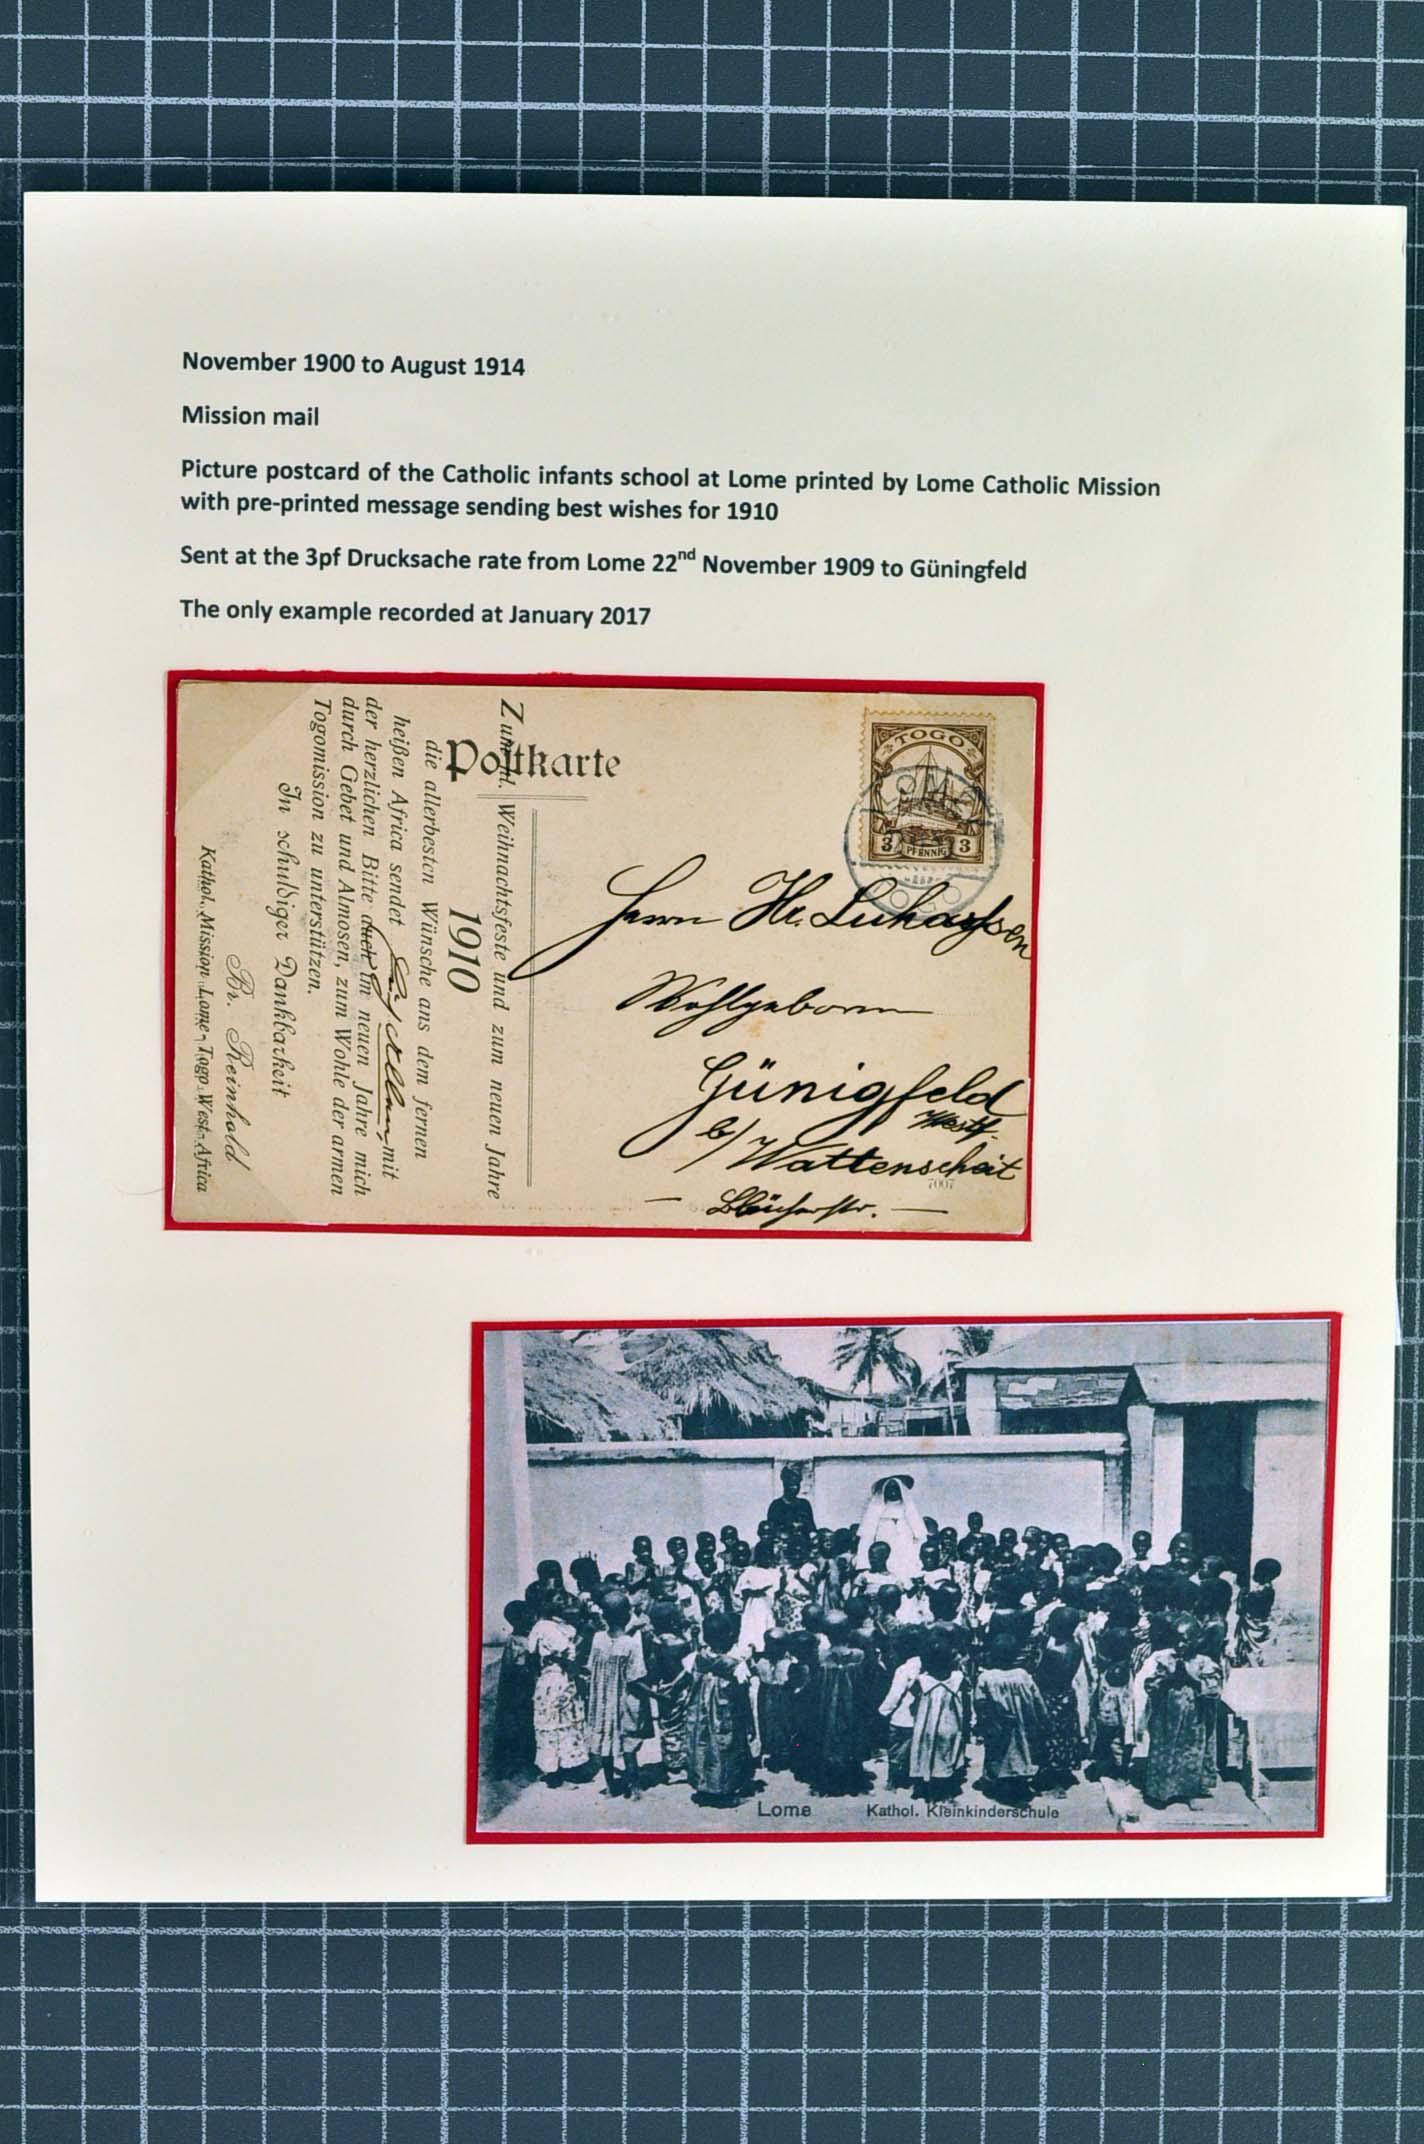 November 1900 to August 1914
Mission mail
Picture postcard of the Catholic infants school at Lome printed by Lome Catholic Mission
with pre-printed message sending best wishes for 1910
Sent at the 3pf Drucksache rate from Lome 22nd November 1909 to Güningfeld
The only example recorded at January 2017
Postkarte
TOGO
3 PFENNIG 3
TOGO
Herrn Hr.
Wohlgeboren
Günigfeld
Westf.
b/ Wattenscheit
7007
Blücherstr.
Zum hl. Weihnachtsfeste und zum neuen Jahre
1910
die allerbesten Wünsche aus dem fernen
heißen Africa sendet mit
der herzlichen Bitte auch im neuen Jahre mich
durch Gebet und Almosen, zum Wohle der armen
Togomission zu unterstützen.
In schuldiger Dankbarkeit
Br. Reinhold
Kathol. Mission Lome - Togo West-Africa
Lome Kathol. Kleinkinderschule